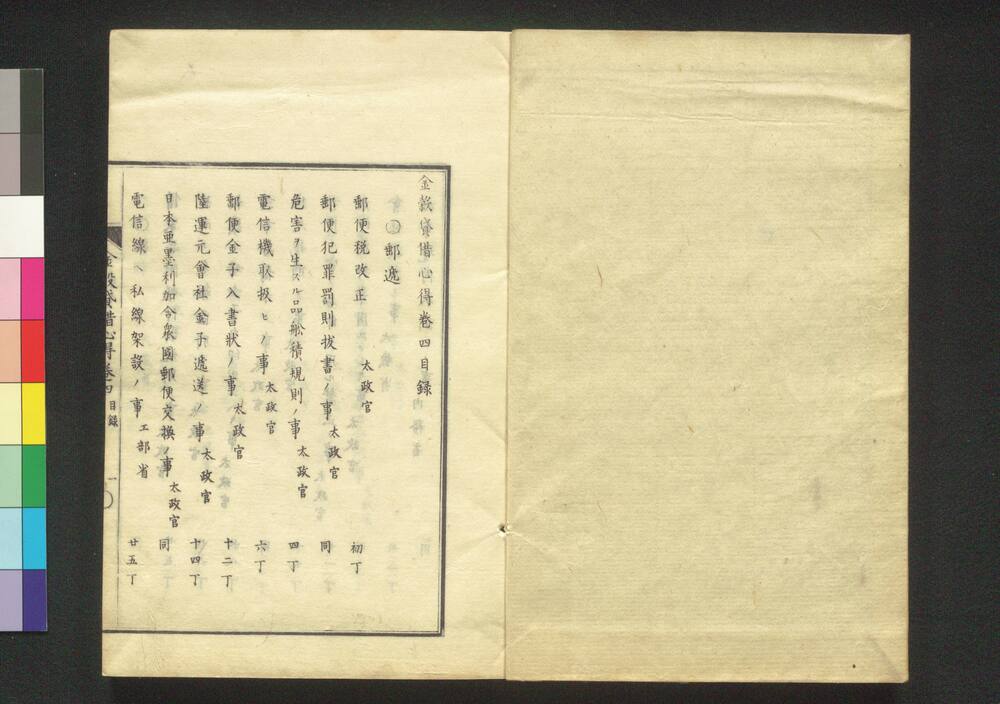 金穀貸借心得巻四目録
○郵遞
郵便税改正 太政官 初丁
郵便犯罪罰則拔書ノ事 太政官 同
危害ヲ生スル品舩積規則ノ事 太政官 四丁
電信機取扱ヒノ事 太政官 六丁
郵便金子入書狀ノ事 太政官 十二丁
陸運元會社金子遞送ノ事 太政官 十四丁
日本亜墨利加合衆國郵便交換ノ事 太政官 同
電信線ヘ私線架設ノ事 工部省 廿五丁
金穀貸借心得巻四 目録 一